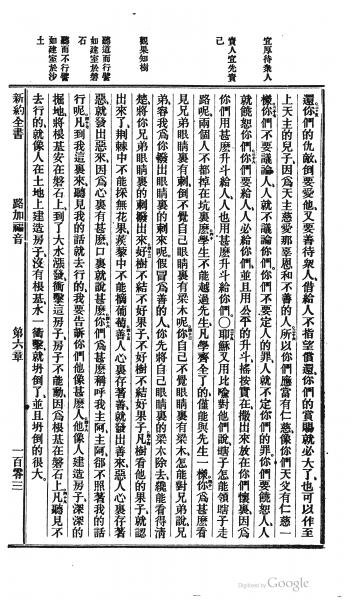 還你們的仇敵倒要愛他又要善待衆人借給人不指望償還你們的賞賜就必大了也可以作至
上天主的兒子因為天主慈愛那辜恩和不善的人所以你們應當有仁慈像你們天父有仁慈一
樣你們不要議論人人就不議論你們你們不要定人的罪人就不定你們的罪你們要饒恕人人
就饒恕你們你們要給人人必給你們並且用公平的升斗搖按實在撒出來放在你們懷裏因為
你們用甚麼升斗給人人也用甚麼升斗給你們○耶穌又用比喻對他們說瞎子怎能領瞎子走
路呢兩個人不都掉在坑裏麼學生不能越過先生凡學齊全了的僅能與先生一樣你為甚麼看
見弟兄眼睛裏有刺倒不覺自己眼睛裏有梁木呢你自己不覺眼睛裏有梁木怎能對弟兄說兄
弟容我為你撥出眼睛裏的刺來呢假冒為善的人你先將自己眼睛裏的梁木除去纔能看得清
楚將你兄弟眼睛裏的刺撥出來好樹不結不好果子不好樹不結好果子凡樹看他的果子就認
出來了荆棘中不能採無花果蒺藜中不能摘葡萄善人心裏存著善就發出善來惡人心裏存著
惡就發出惡來因為心裏有甚麼口裏就說甚麼你們為甚麼稱呼我主阿主阿卻不照著我的話
行呢凡到我這裏來聽見我的話就去行的我要告訴你們他像甚麼人他像人建造房子深深的
掘地將根基安在磐石上到了大水漲發衝擊這房子房子不能動因為根基在磐石上凡聽見不
去行的就像人在土地上建造房子沒有根基水一衝擊就坍倒了並且坍倒的很大
宜厚待衆人
責人宜先責
己
觀果知樹
聽道而行譬
如建室於磐
石
聽而不行譬
如建室於沙
土
新約全書
路加福音
第六章
一百零三
Digitized by Google